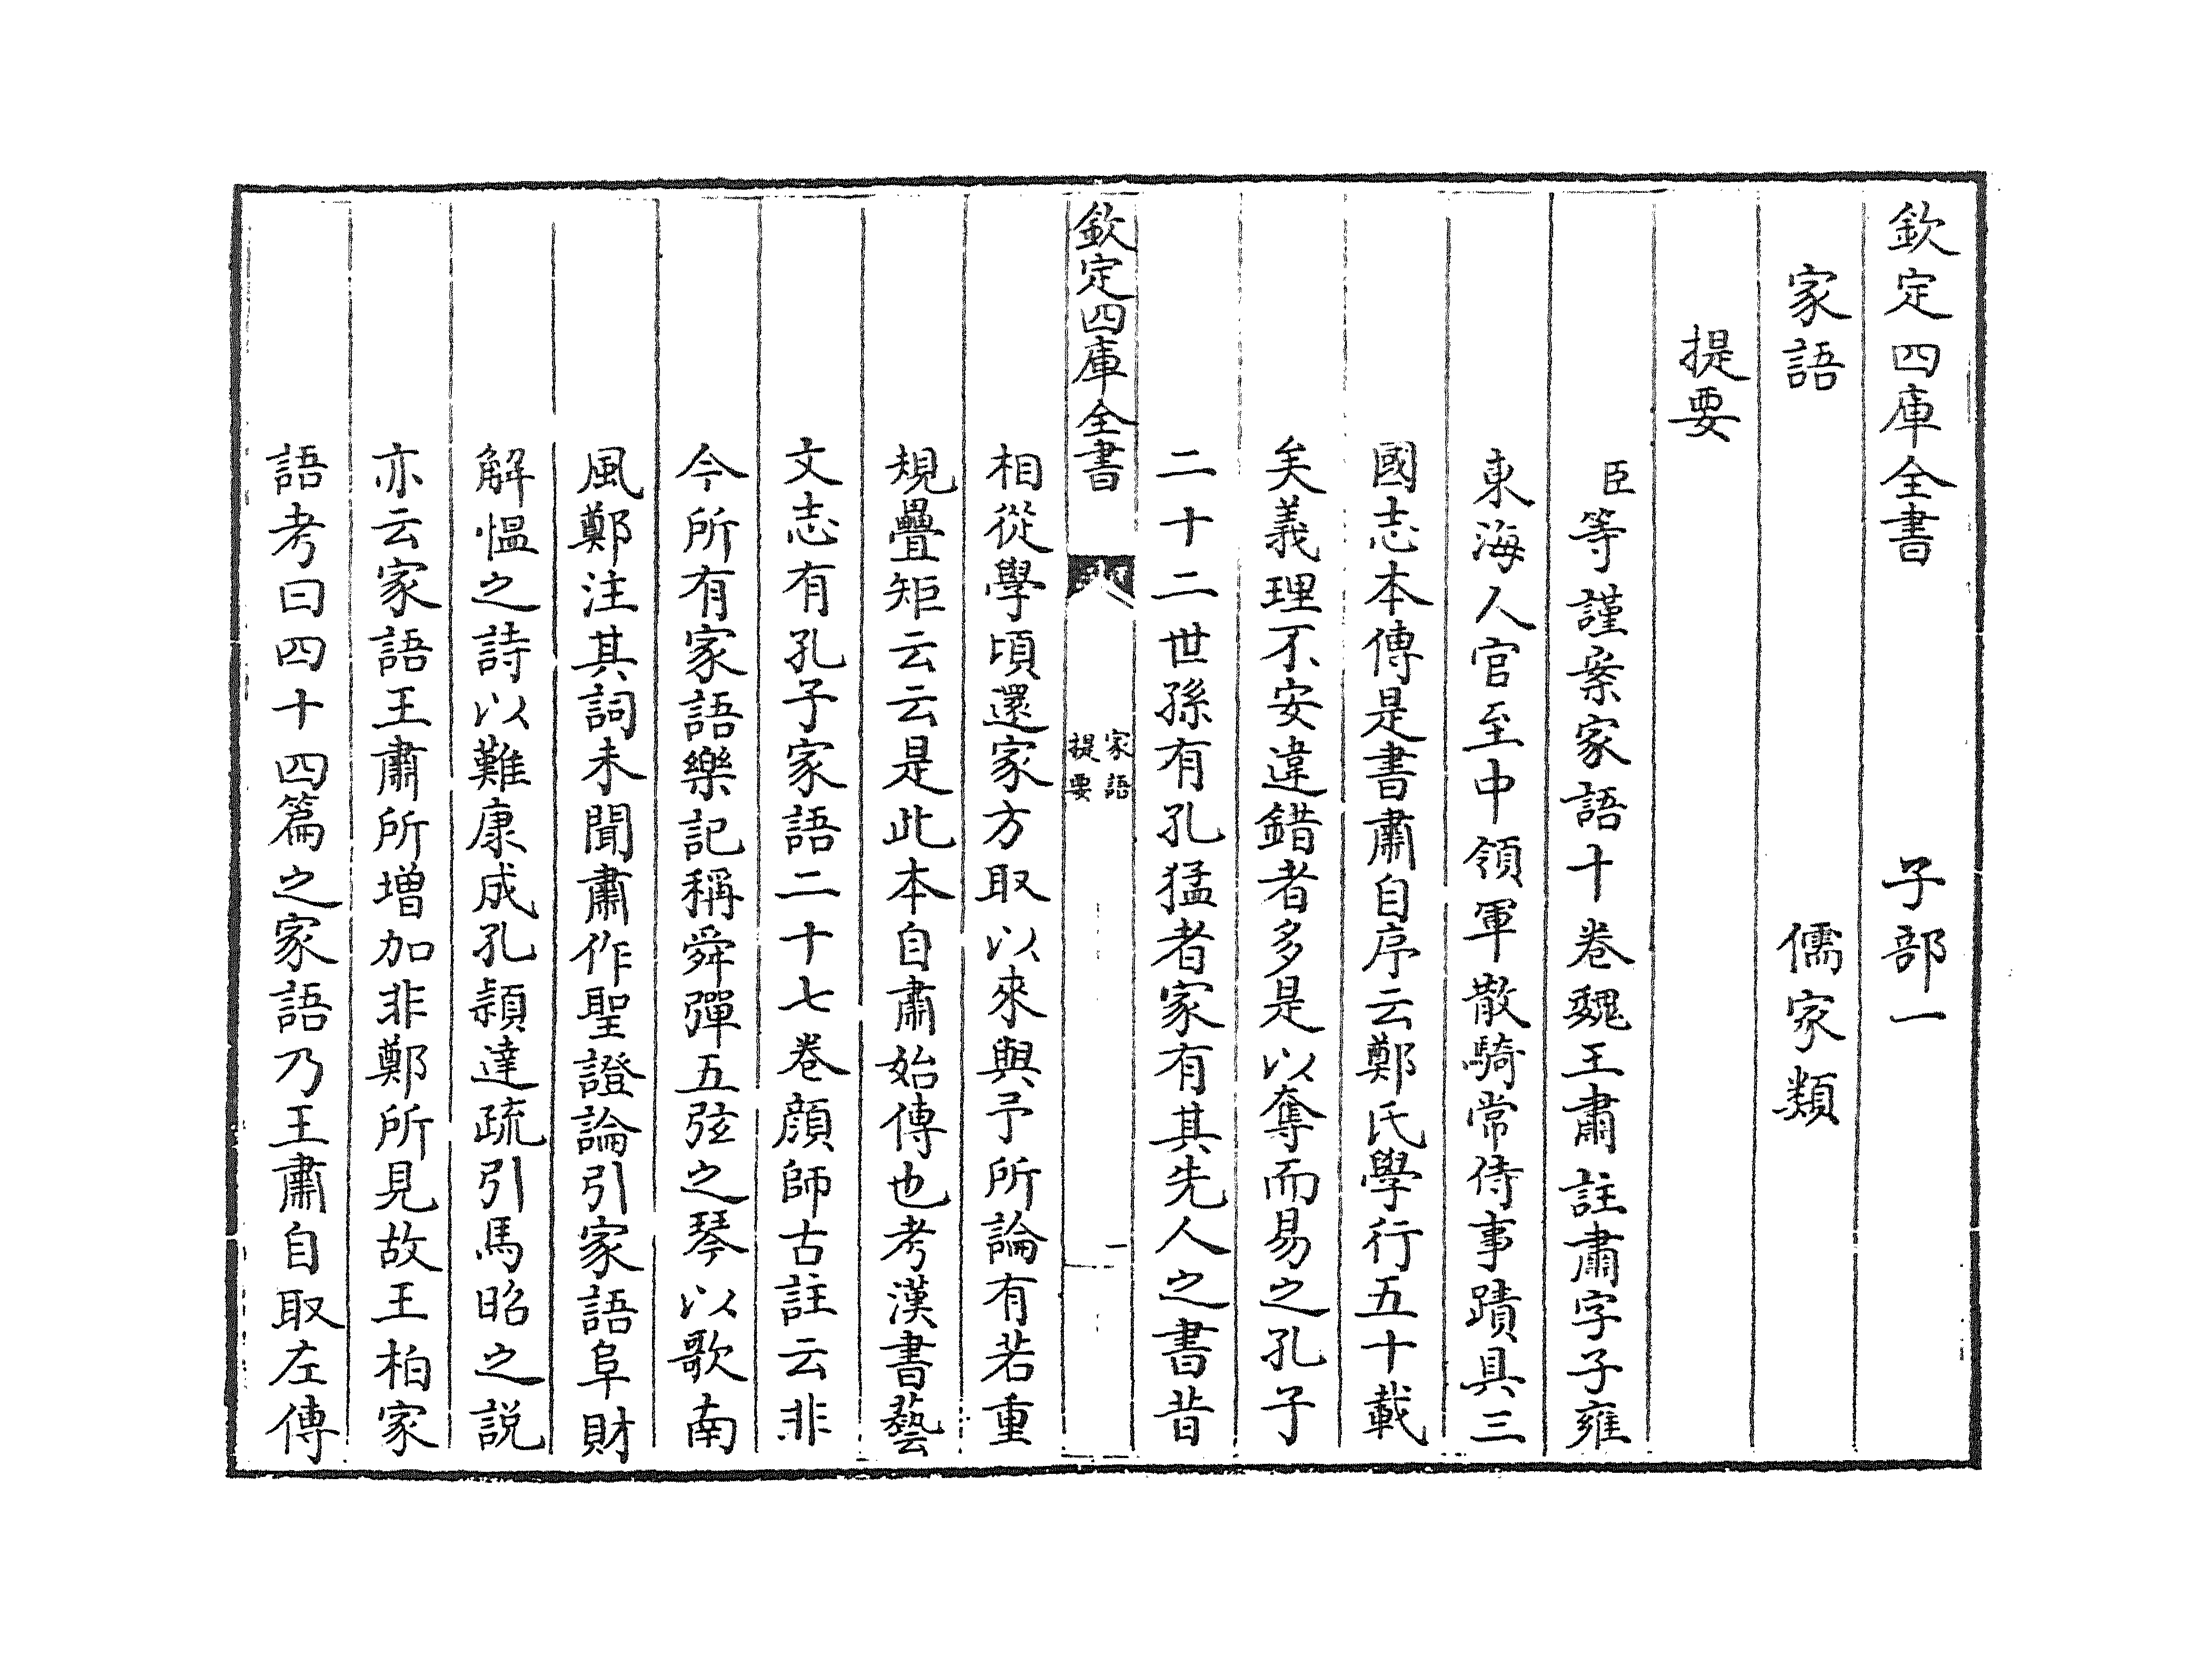 欽定四庫全書　子部一
家語　儒家類
提要
臣等謹案家語十卷魏王肅註肅字子雍
東海人官至中領軍散騎常侍事蹟具三
國志本傳是書肅自序云鄭氏學行五十載
矣義理不安違錯者多是以奪而易之孔子
二十二世孫有孔猛者家有其先人之書昔
欽定四庫全書
家語
提要
一
相從學頃還家方取以來與予所論有若重
規疊矩云云是此本自肅始傳也考漢書藝
文志有孔子家語二十七卷顔師古註云非
今所有家語樂記稱舜彈五弦之琴以歌南
風鄭注其詞未聞肅作聖證論引家語阜財
解愠之詩以難康成孔頴達疏引馬昭之説
亦云家語王肅所增加非鄭所見故王柏家
語考曰四十四篇之家語乃王肅自取左傳